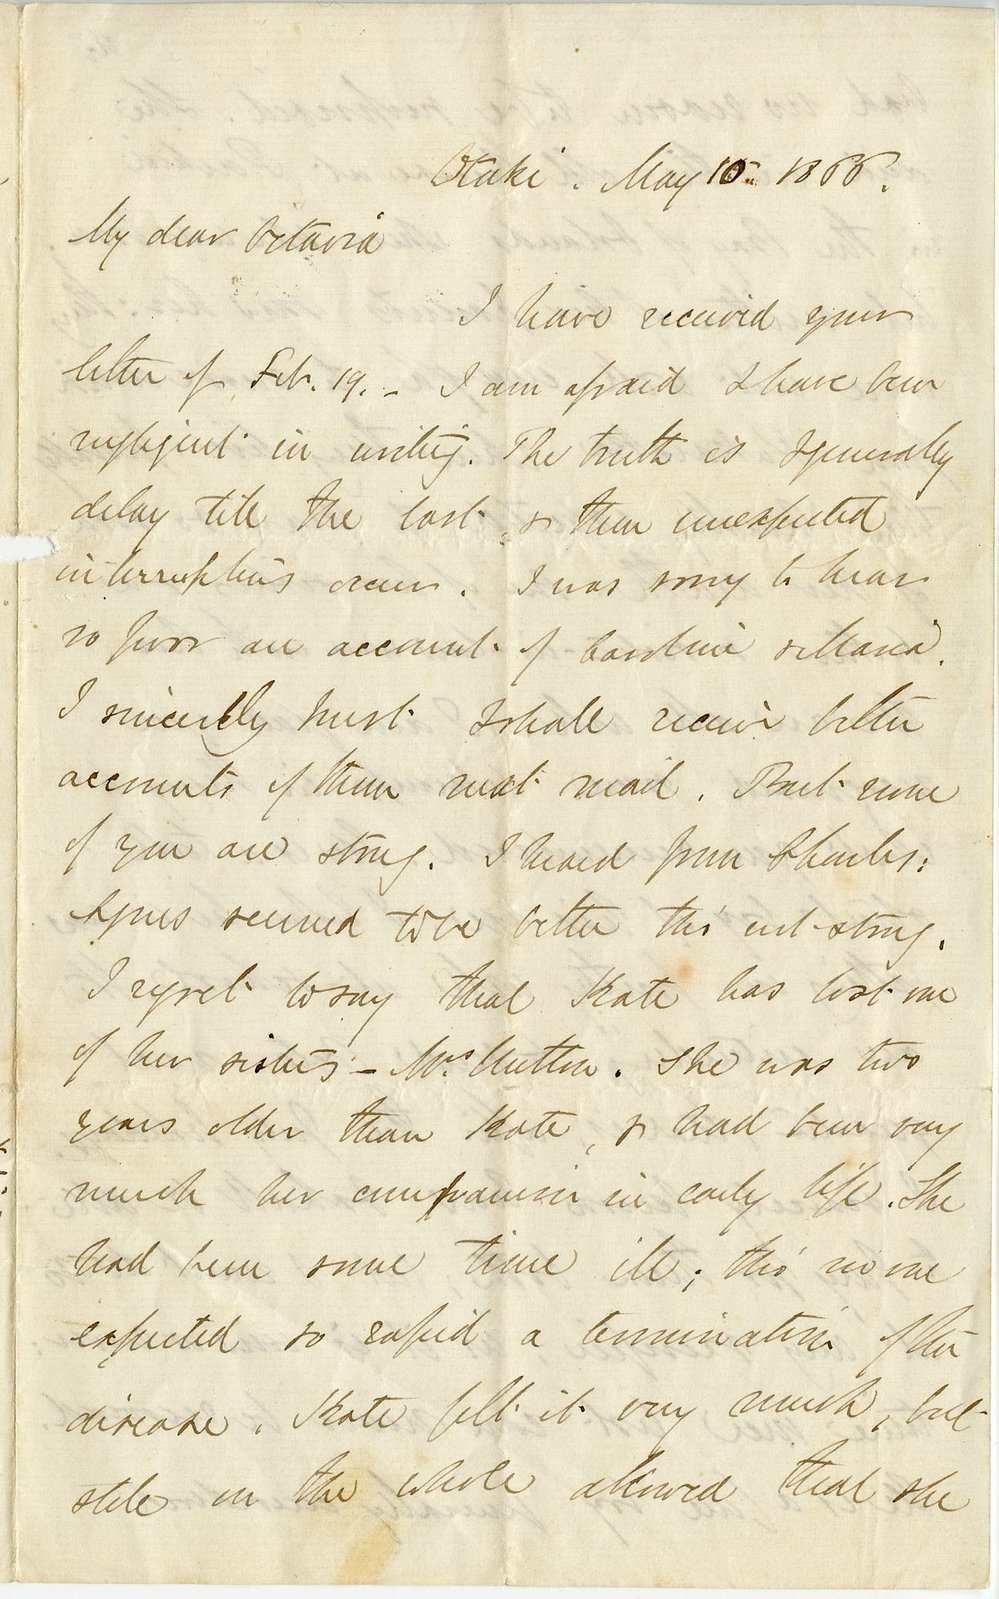 Otaki. May 10. 1866.
My dear Octavia
I have received your
letter of Feb. 19. - I am afraid I have been
negligent in writing. The truth is I generally
delay till the last, & then unexpected
interruptions occur. I was sorry to hear
so poor an account of Caroline & Maria.
I sincerely trust I shall receive better
accounts of them next mail. But none
of you are strong. I heard from Charles;
Agnes seemed to be better tho' not strong.
I regret to say that Kate has lost one
of her sisters - Mrs. Hutton. She was two
years older than Kate, & had been very
much her companion in early life. She
had been some time ill; tho' no one
expected so rapid a termination of the
disease. Kate felt it very much, but
still on the whole allowed that she